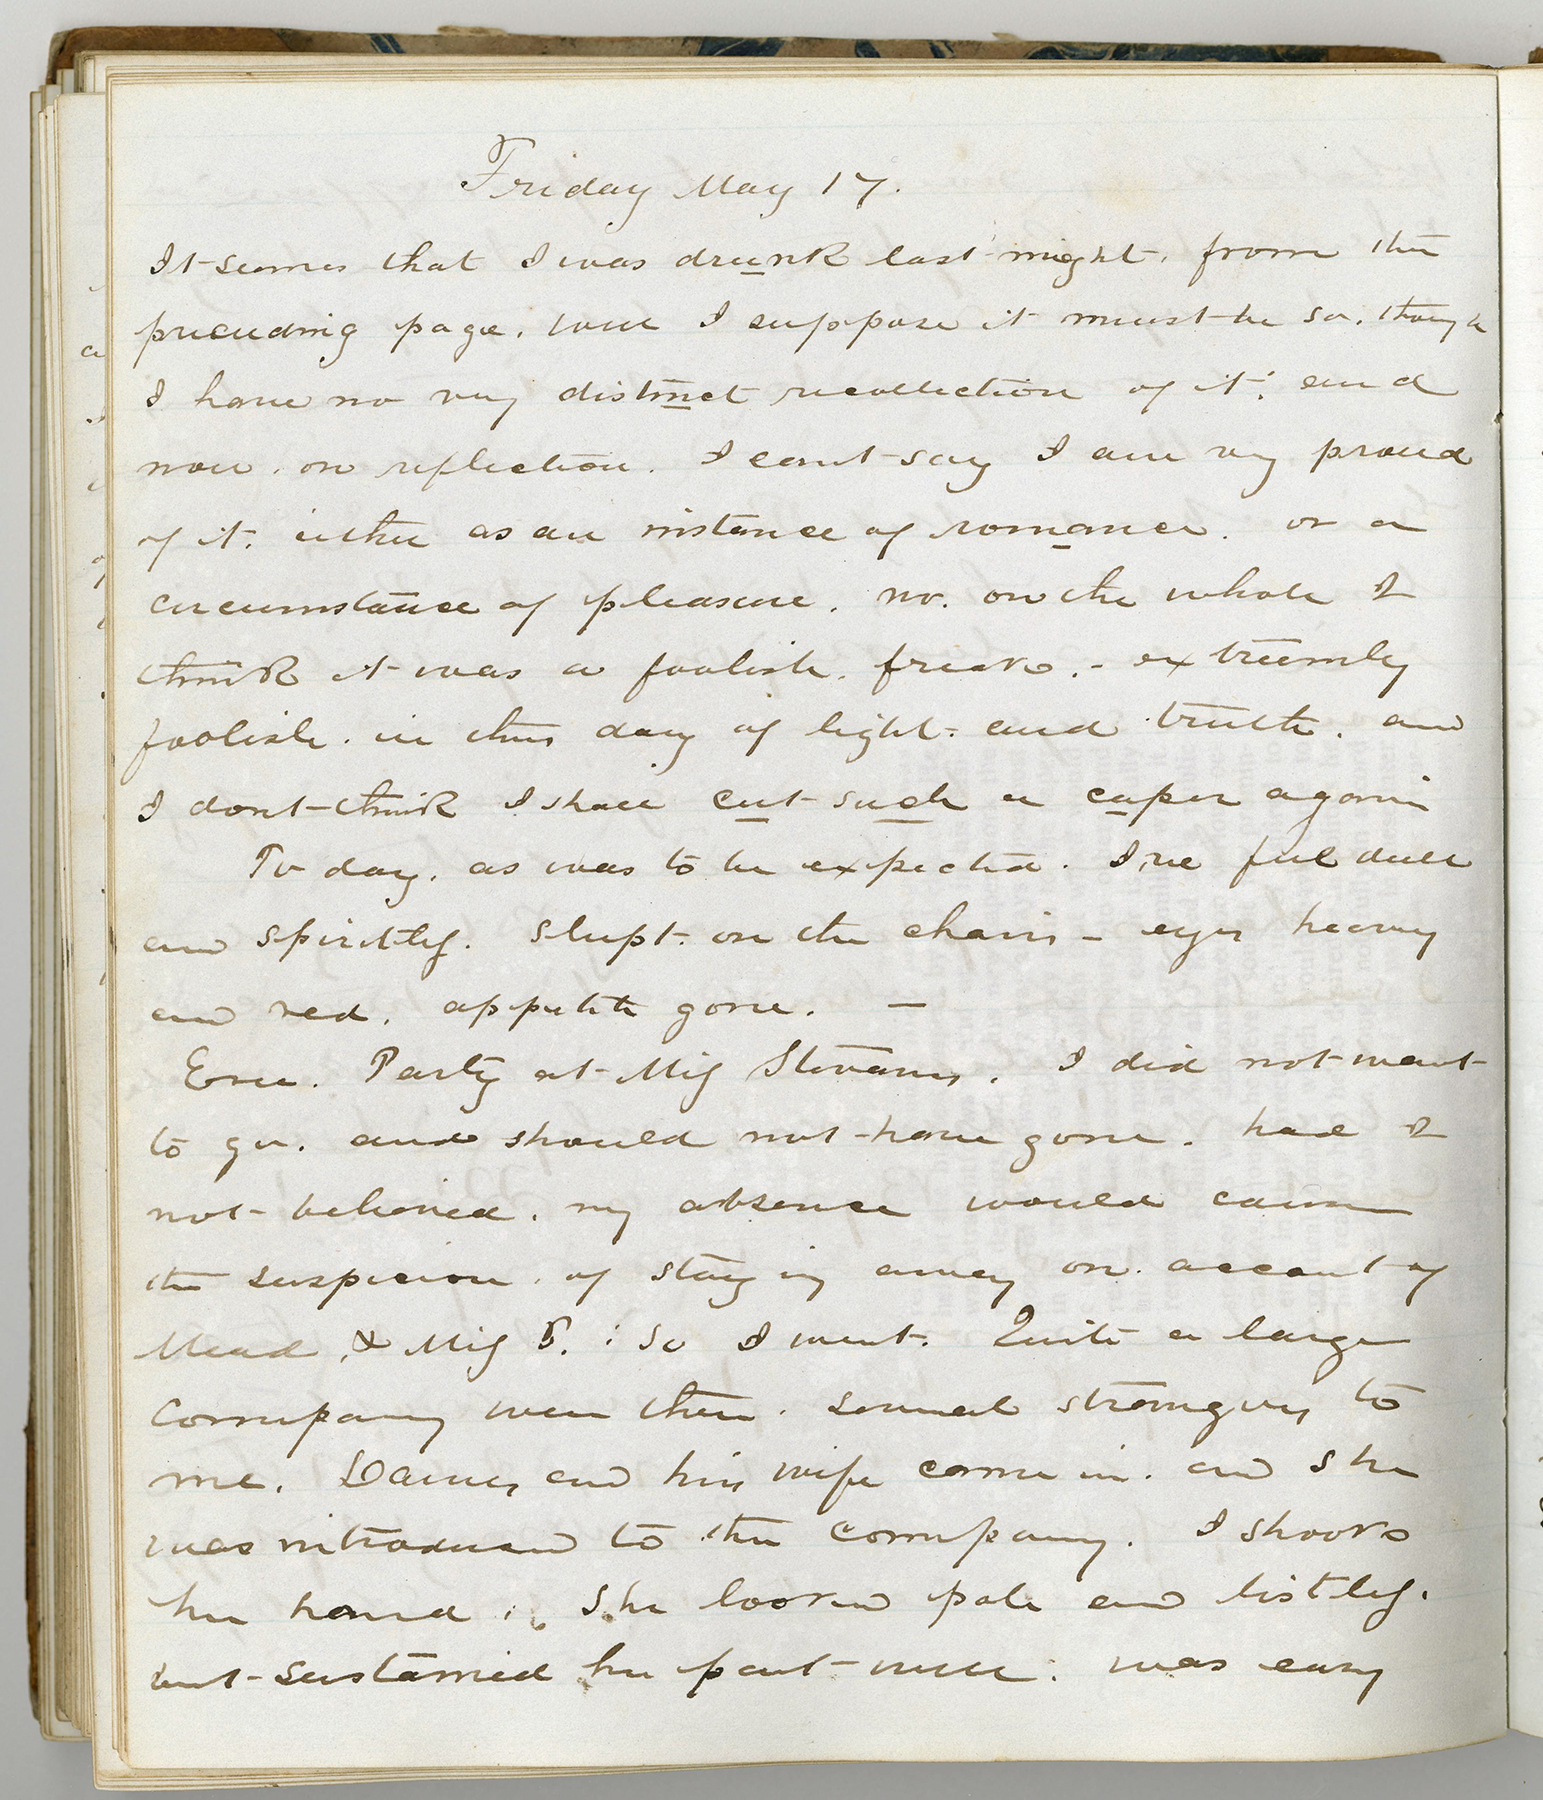 Friday May 17.
It seems that I was drunk last night, from the
preceeding page, well I suppose it must be so, though
I have no very distinct recollection of it; and
now, on reflection, I cant say I am very proud
of it, either as an instance of romance, or a
circumstance of pleasure, no, on the whole I
think it was a foolish freak, - extreemly
foolish in this day of light and truth, and
I dont think I shall cut such a caper again
To day, as was to be expected, I've feel dull
and spiritless. Slept on the chairs - eyes heavy
and red, appetite gone. —
Eve. Party at Miss Stevans. I did not want
to go, and should not have gone, had I
not believed, my absence would cause
the suspicion of staying away on account of
Mead, & Miss B. ; So I went. Quite a large
company were there, several strangers to
me. Daines and his wife came in, and she
was introduced to the company. I shook
her hand; She looked pale and listless,
but sustained her part well; was easy